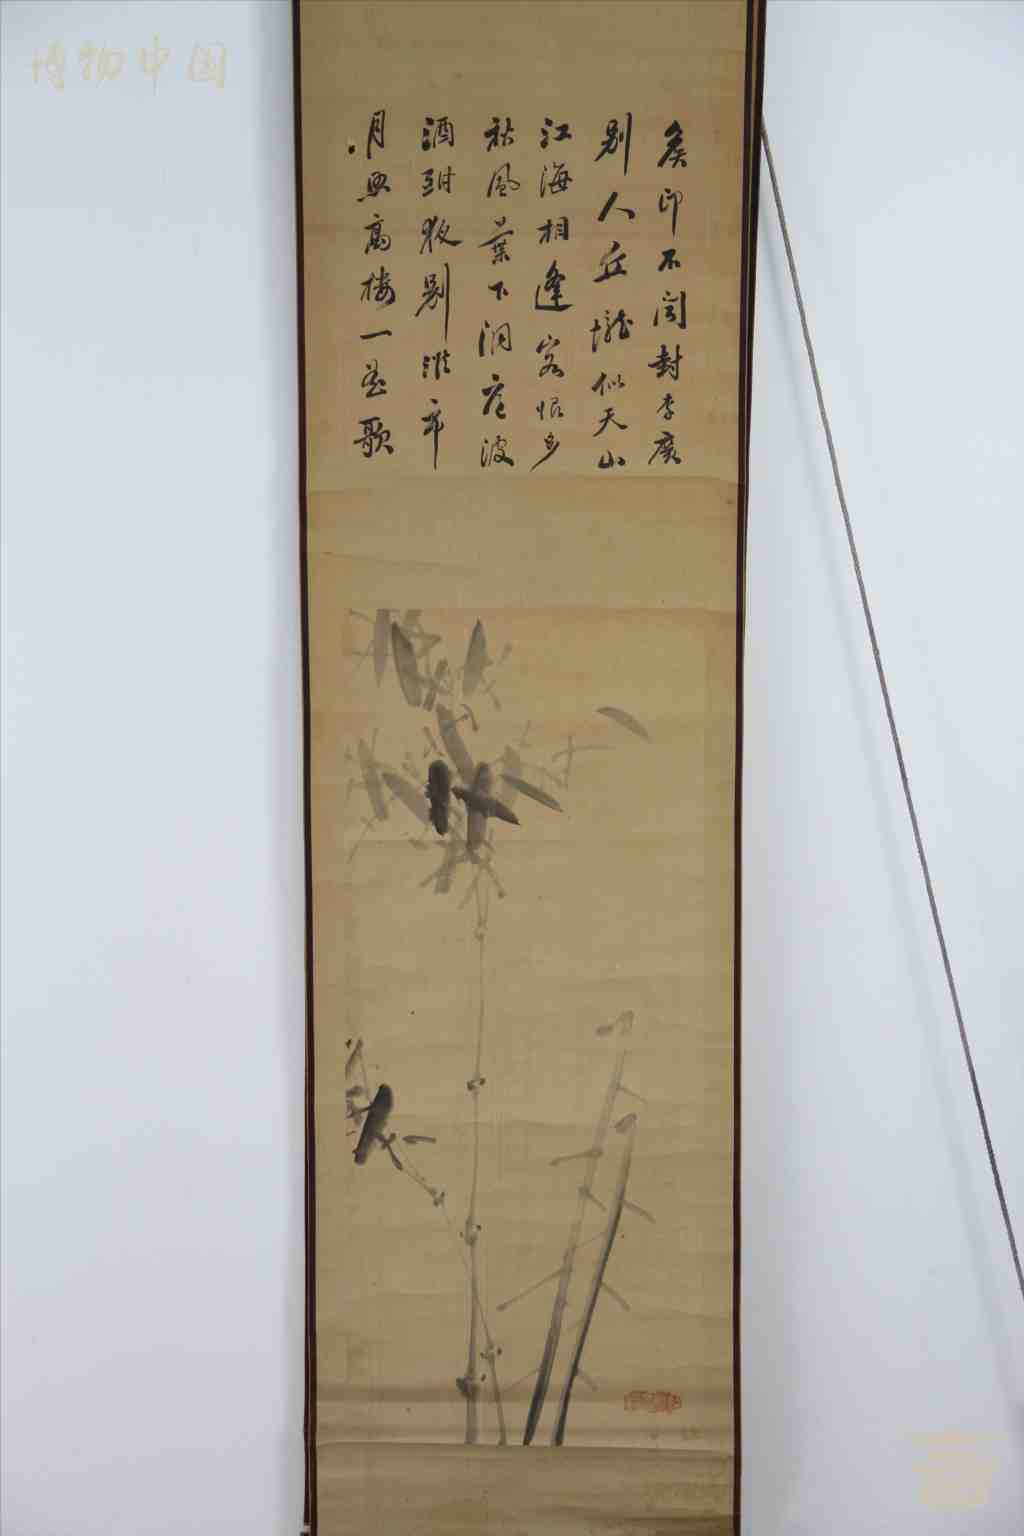 博物中国
侯印不聞封李廣
别人丘壠似天山
江海相逢客恨多
秋風葉下洞庭波
酒酣夜别淮市
月照高樓一曲歌